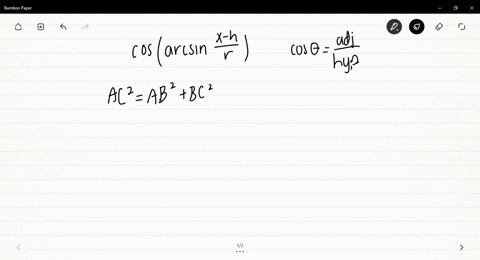 Bamboo Paper
cos(arcsin (x-h)/r) cosθ = adj/hyp
AC² = AB² + BC²
1/2